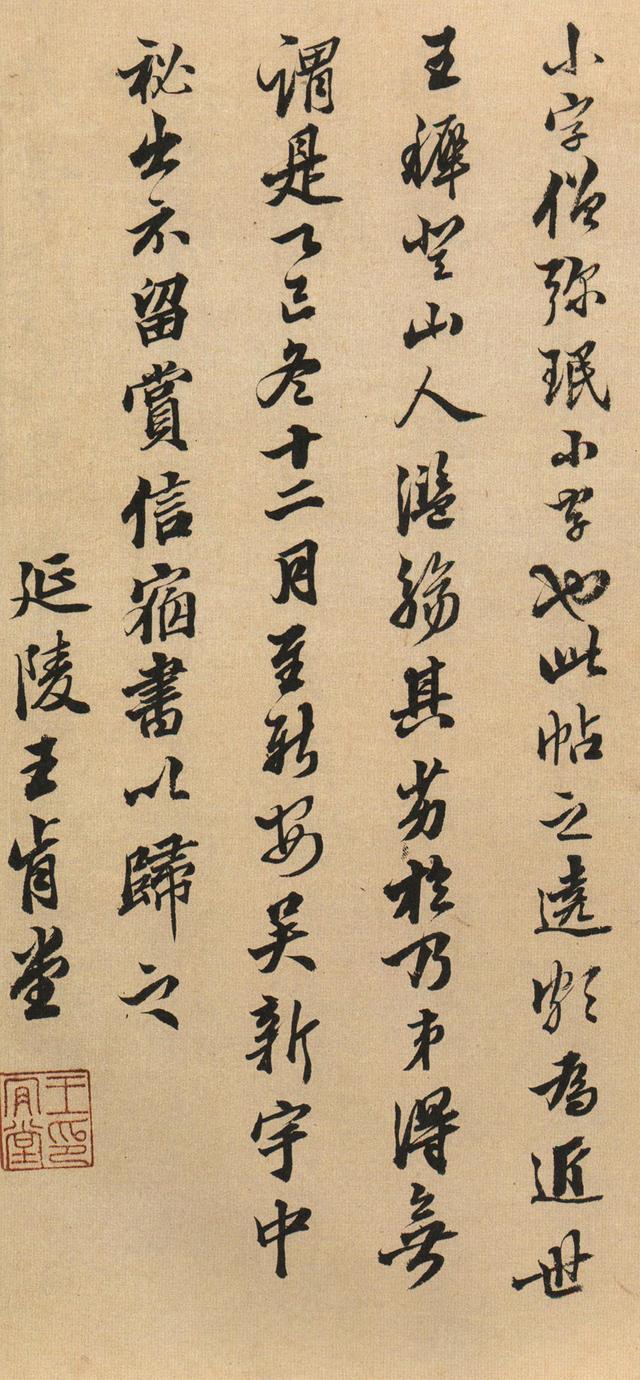 小字僧弥珉小字也此帖之遶頗為近世
王穉登山人濫觴其劣於乃弟得無
謂是乙巳冬十二月至新安吴新宇中
秘出示留賞信宿書以歸之
延陵王肯堂
王印肯堂